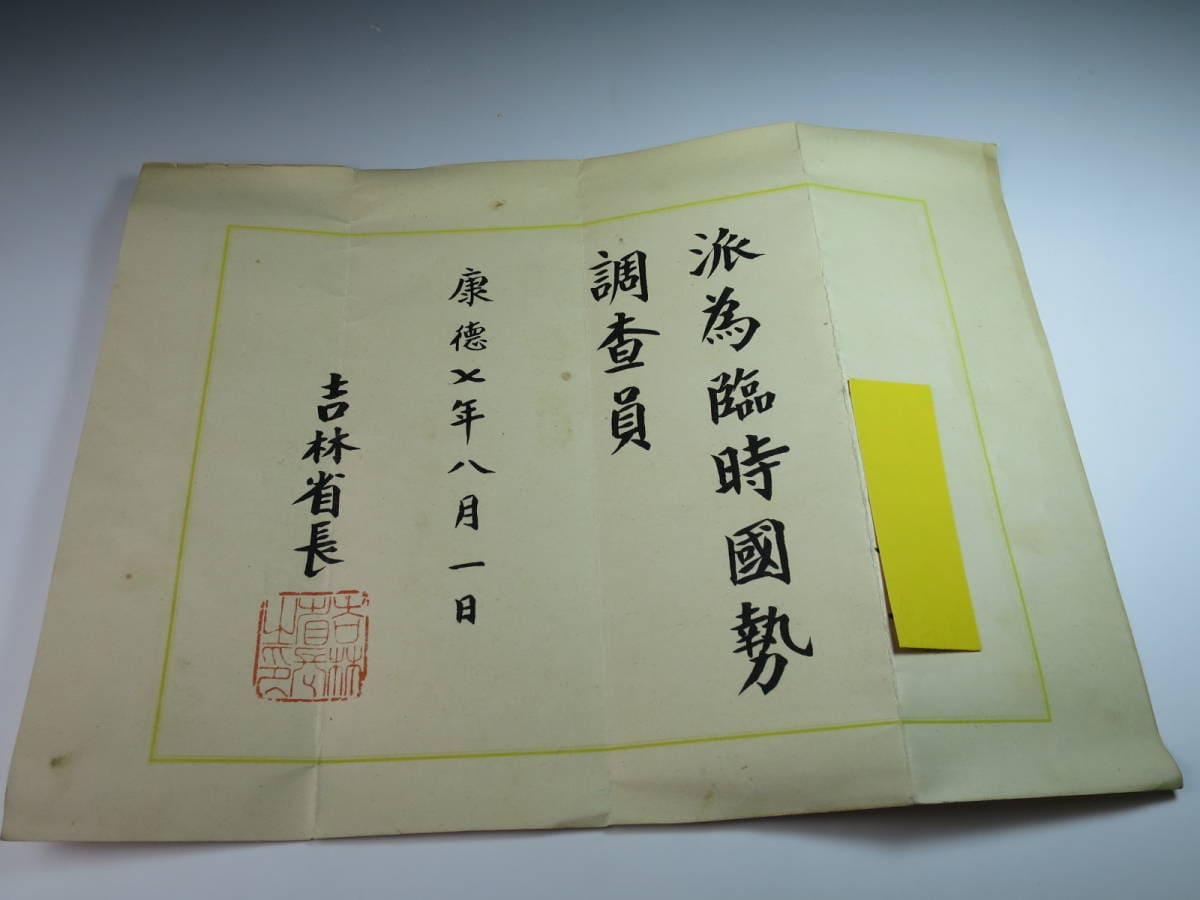 派為臨時國勢
調查員
康德七年八月一日
吉林省長
吉林
省長
之印